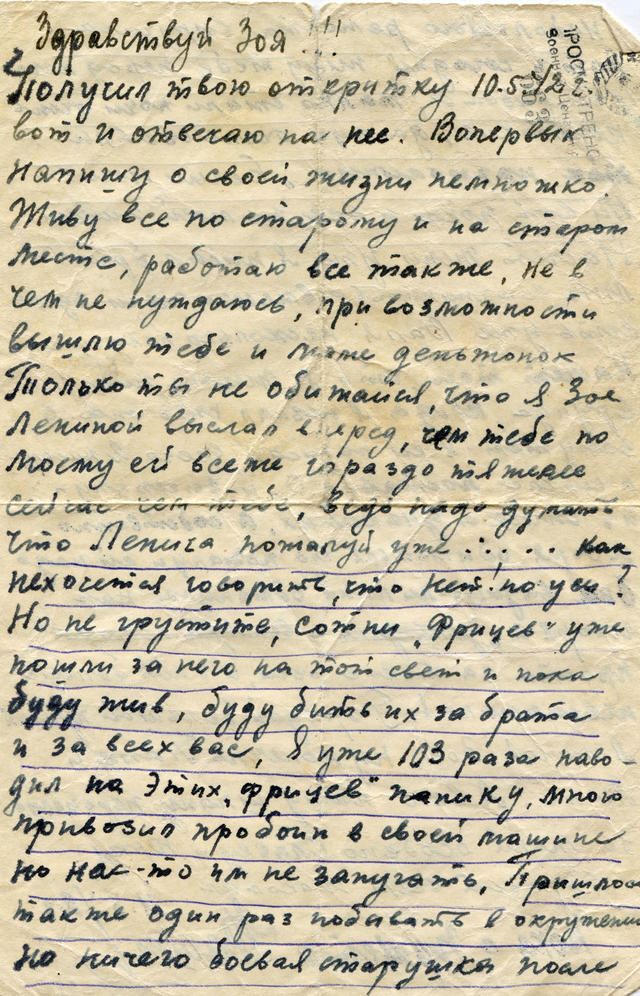 Здравствуй Зоя!!!
Получил твою открытку 10.5.42 г.
ПРОСМОТРЕНО
Военной Цензурой
вот и отвечаю на нее. Вопервых
напишу о своей жизни немножко.
Живу все по старому и на старом
месте, работаю все также, не в
чем не нуждаюсь, при возможности
вышлю тебе и маме деньжонок
Только ты не обижайся, что я Зое
Лениной выслал вперед, чем тебе по
моему ей всеже гораздо тяжелее
сейчас чем тебе, ведь надо думать
что Лениča пожалуй уже ..... как
нехочется говорить, что нет! но увы?
Но не грустите, сотни „Фрицев" уже
пошли за него на тот свет и пока
буду жив, буду бить их за брата
и за всех вас, я уже 103 раза наво-
дил на этих „фрицев" панику, много
привозил пробоин в своей машине
но нас-то им не запугать. Пришлось
также один раз побывать в окружении
но ничего боевая старушка после